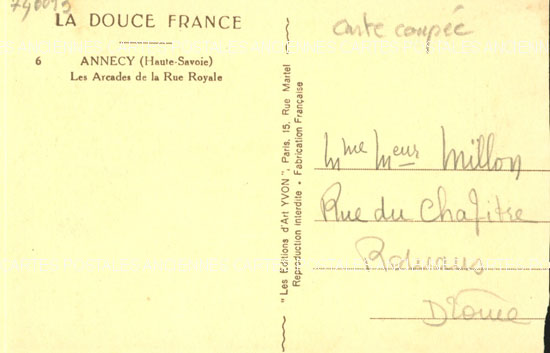 740095
LA DOUCE FRANCE
6 ANNECY (Haute-Savoie)
Les Arcades de la Rue Royale
"Les Editions d'Art YVON", Paris, 15, Rue Martel
Reproduction interdite • Fabrication Française
Carte coupée
Mme Meur Millon
Rue du Chapitre
Romans
Drome